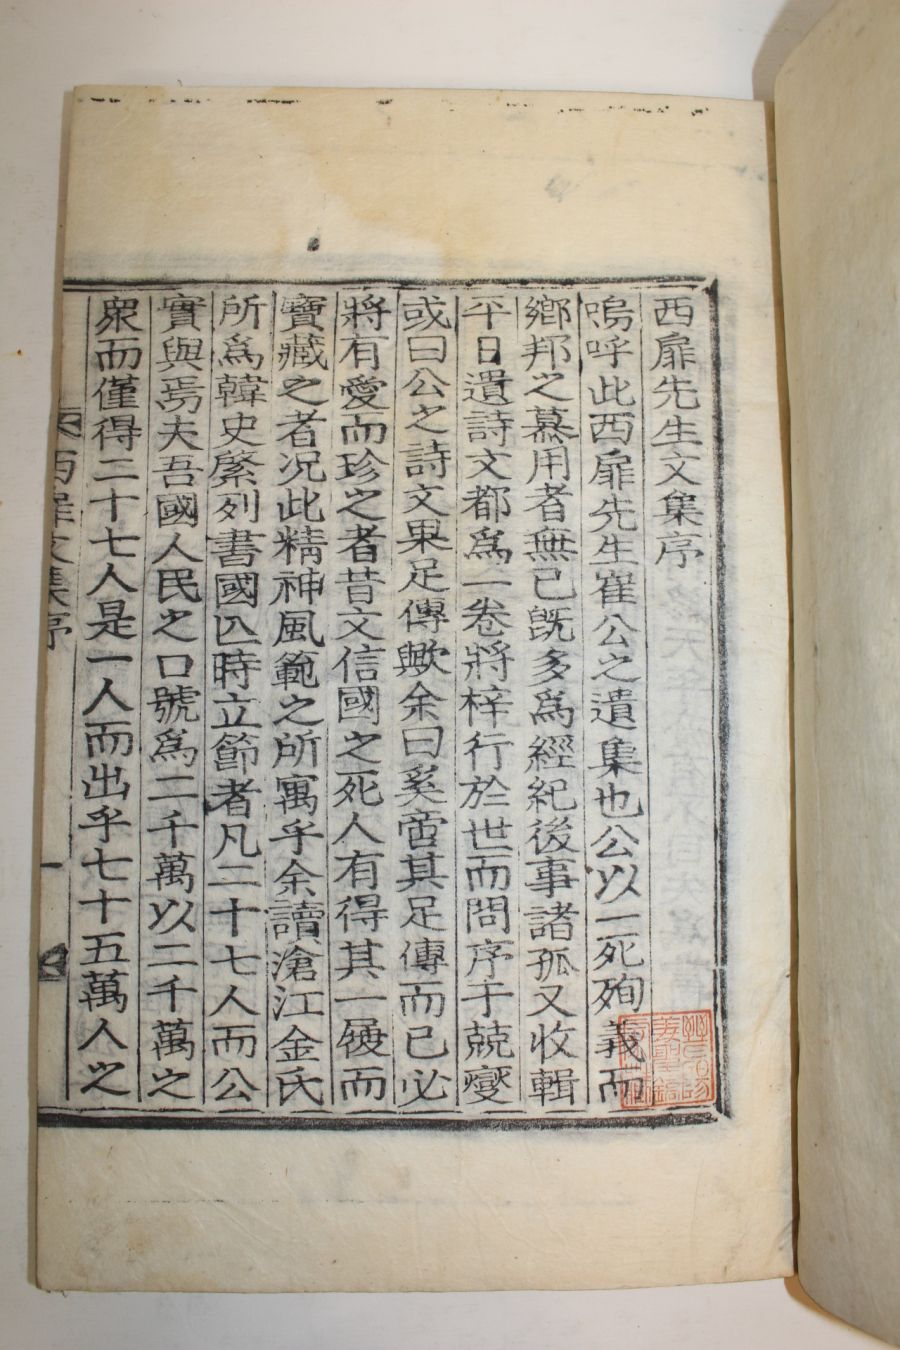 西扉先生文集序
嗚呼此西扉先生崔公之遺集也公以一死殉義而
鄉邦之慕用者無已旣多爲經紀後事諸孤又收輯
平日遺詩文都爲一卷將梓行於世而問序于兢燮
或曰公之詩文果足傳歟余曰奚啻其足傳而已必
將有愛而珍之者昔文信國之死人有得其一屐而
寶藏之者况此精神風範之所寓乎余讀滄江金氏
所爲韓史綮列書國亾時立節者凡二十七人而公
實與焉夫吾國人民之口號爲二千萬以二千萬之
衆而僅得二十七人是一人而出乎七十五萬人之
西扉文集序
一